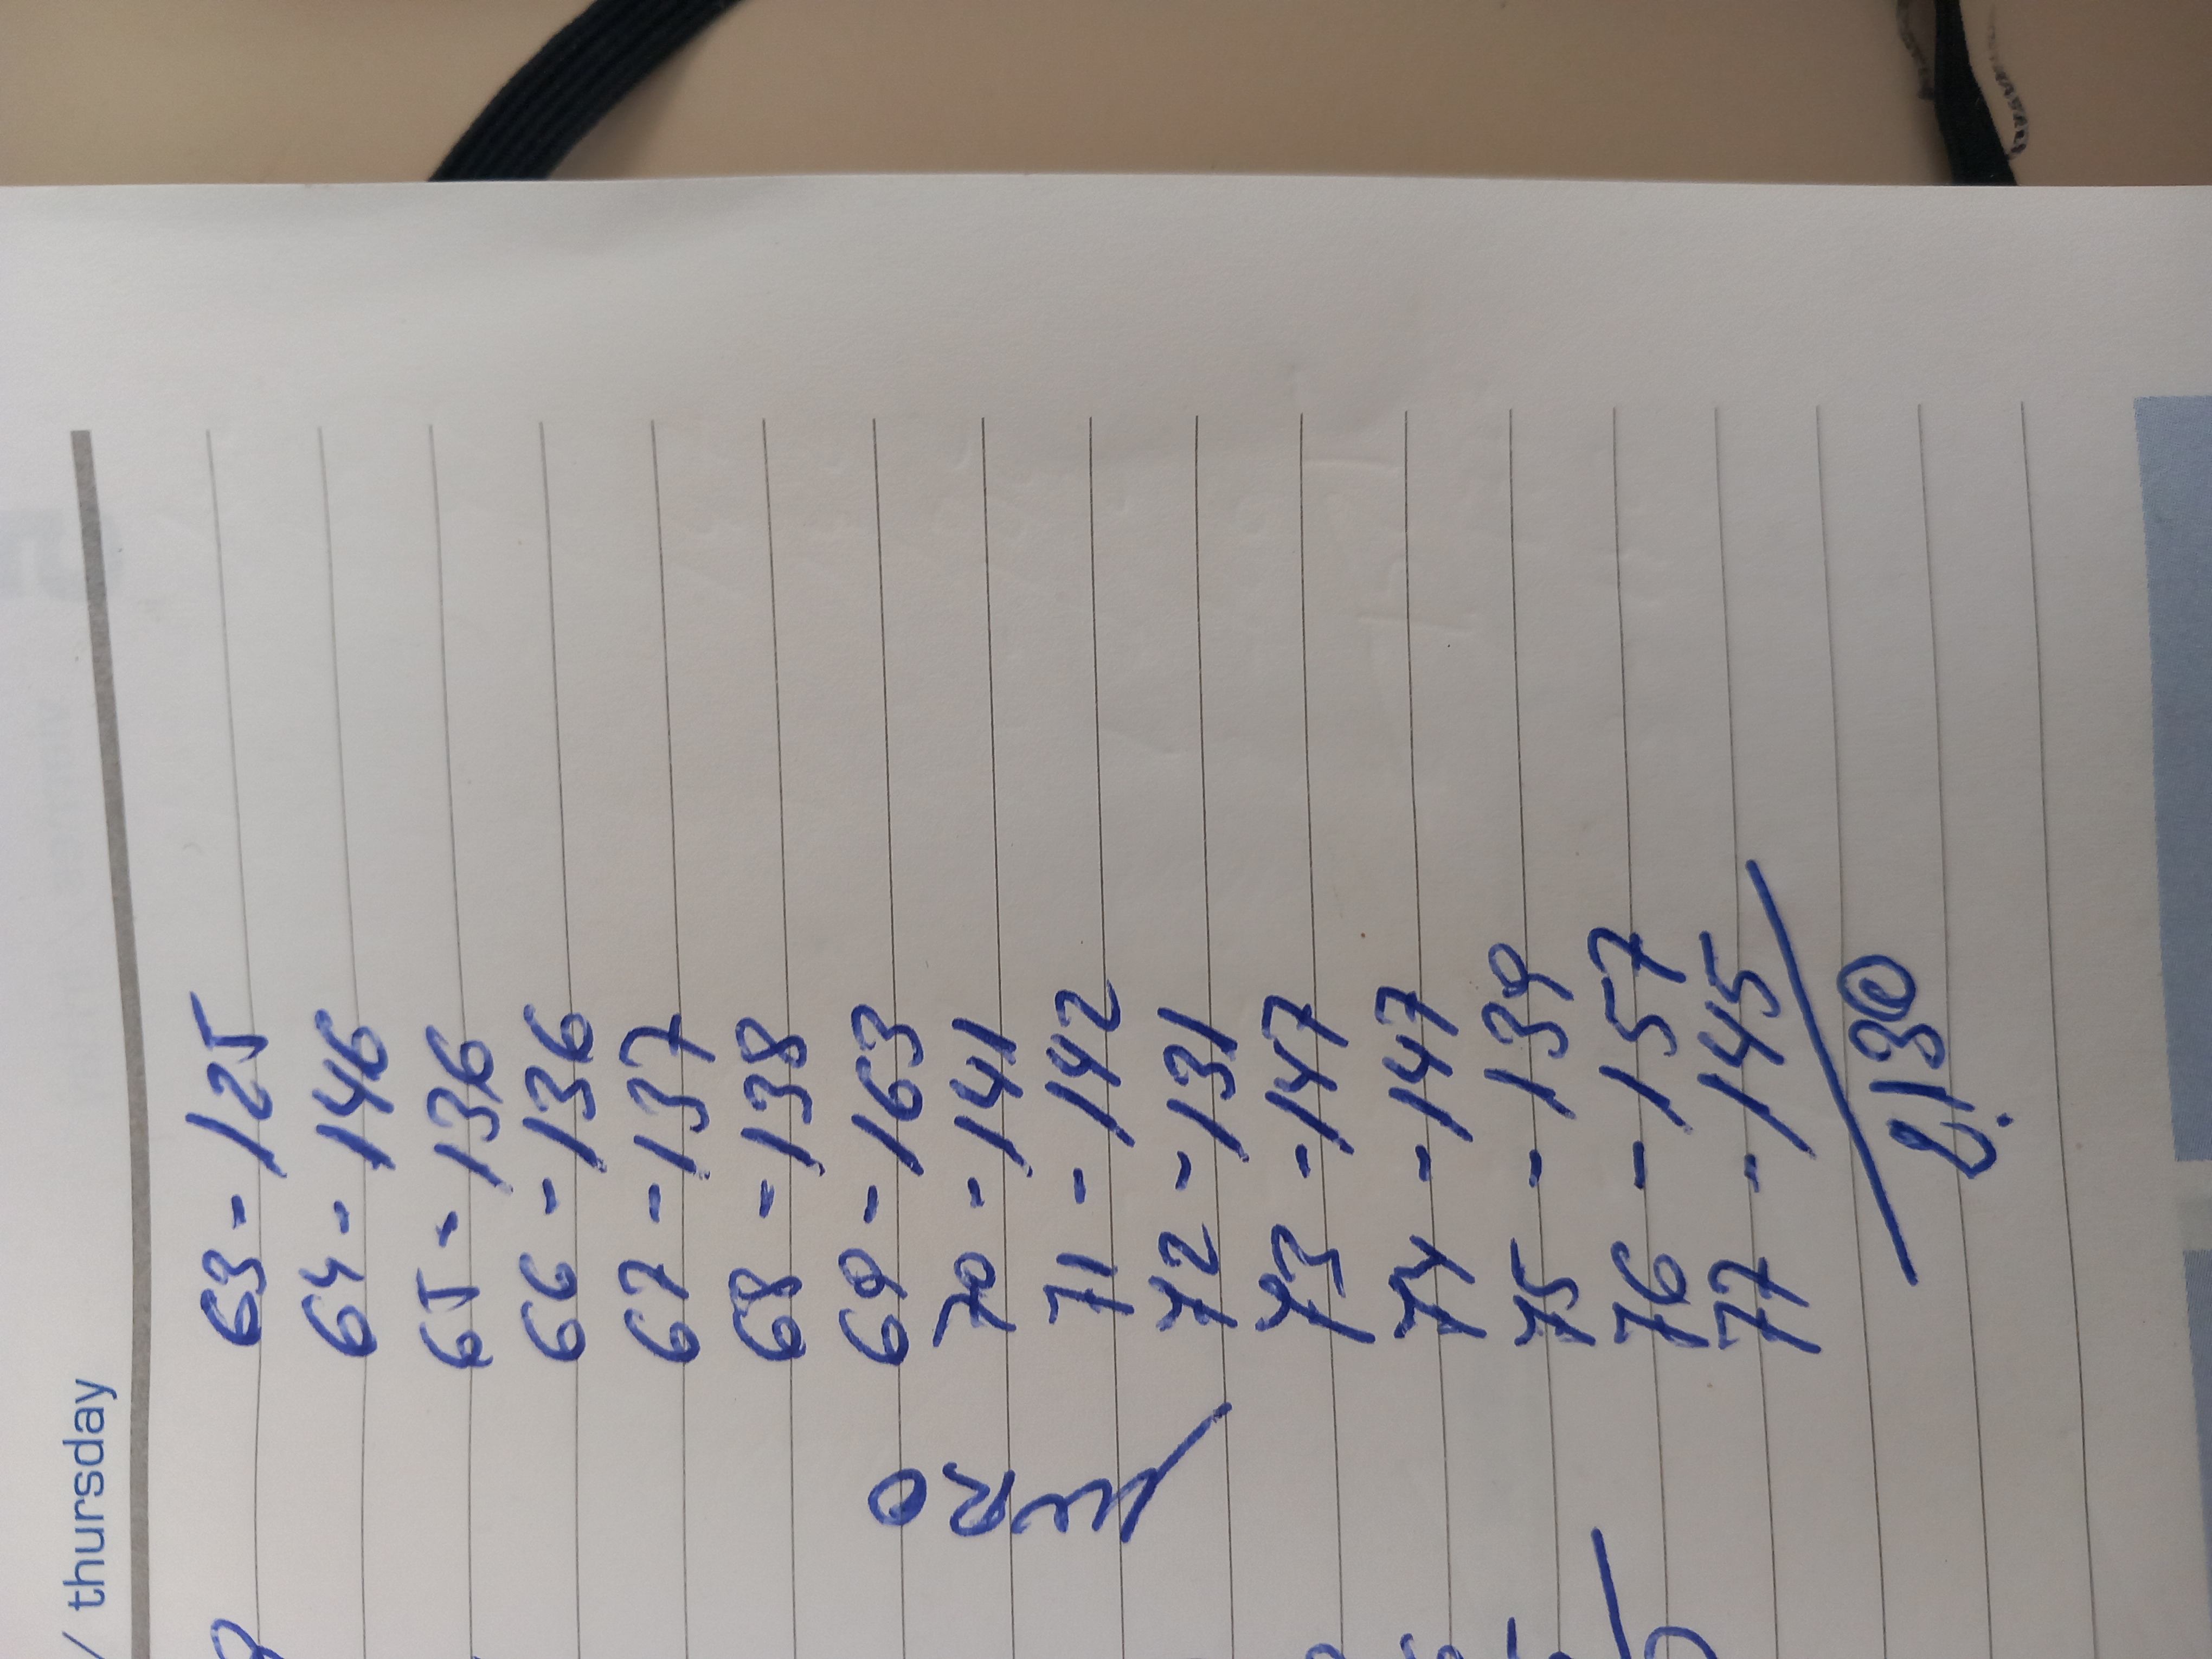 / thursday
63 - 125
64 - 146
65 - 136
66 - 136
67 - 137
68 - 138
69 - 163
70 - 141
71 - 142
72 - 131
73 - 147
74 - 147
75 - 139
76 - 157
77 - 145
2.130